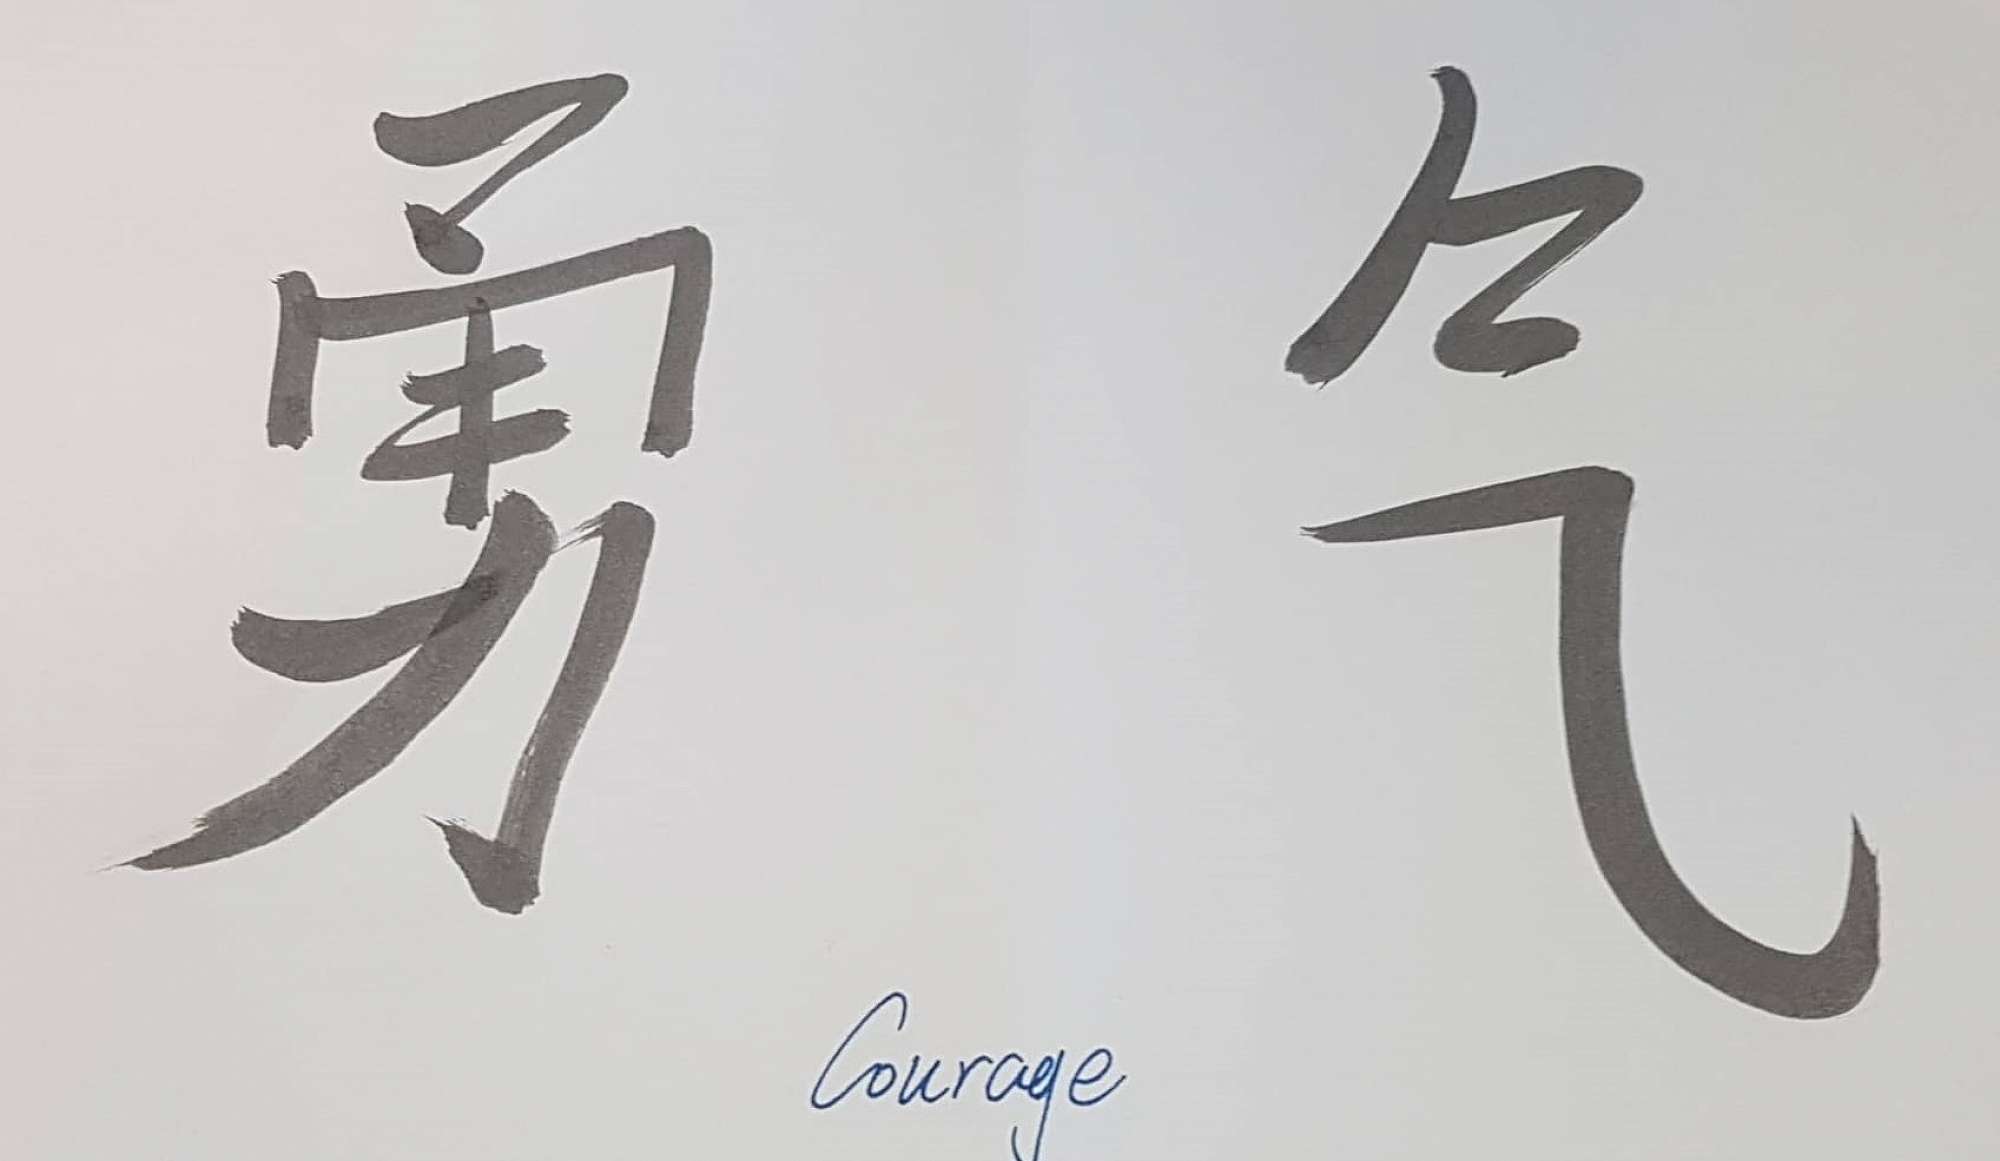 勇气
Courage